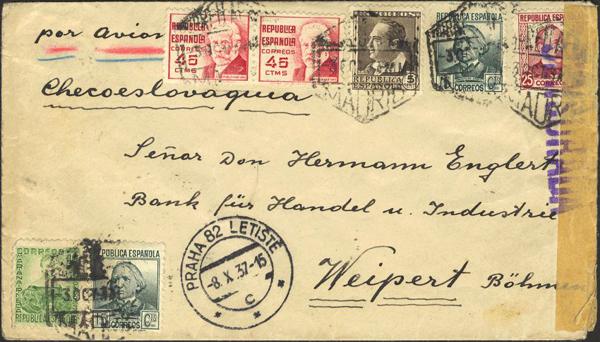 por Avion
REPUBLICA
ESPAÑOLA
CORREOS
45
CTMS
REPUBLICA
ESPAÑOLA
CORREOS
45
CTMS
CORREOS
5
REPUBLICA
ESPAÑOLA
REPUBLICA ESPAÑOLA
CORREOS
REPUBLICA ESPAÑOLA
25
CORREOS
MADRID
MADRID
Checoeslovaquia
Señor Don Hermann Englert
Bank für Handel u. Industrie
Weipert Böhmen
PRAHA 82 LETIŠTĚ
-8.X.37-15
C
CORREOS
REPUBLICA ESPAÑOLA
REPUBLICA ESPAÑOLA
CORREOS